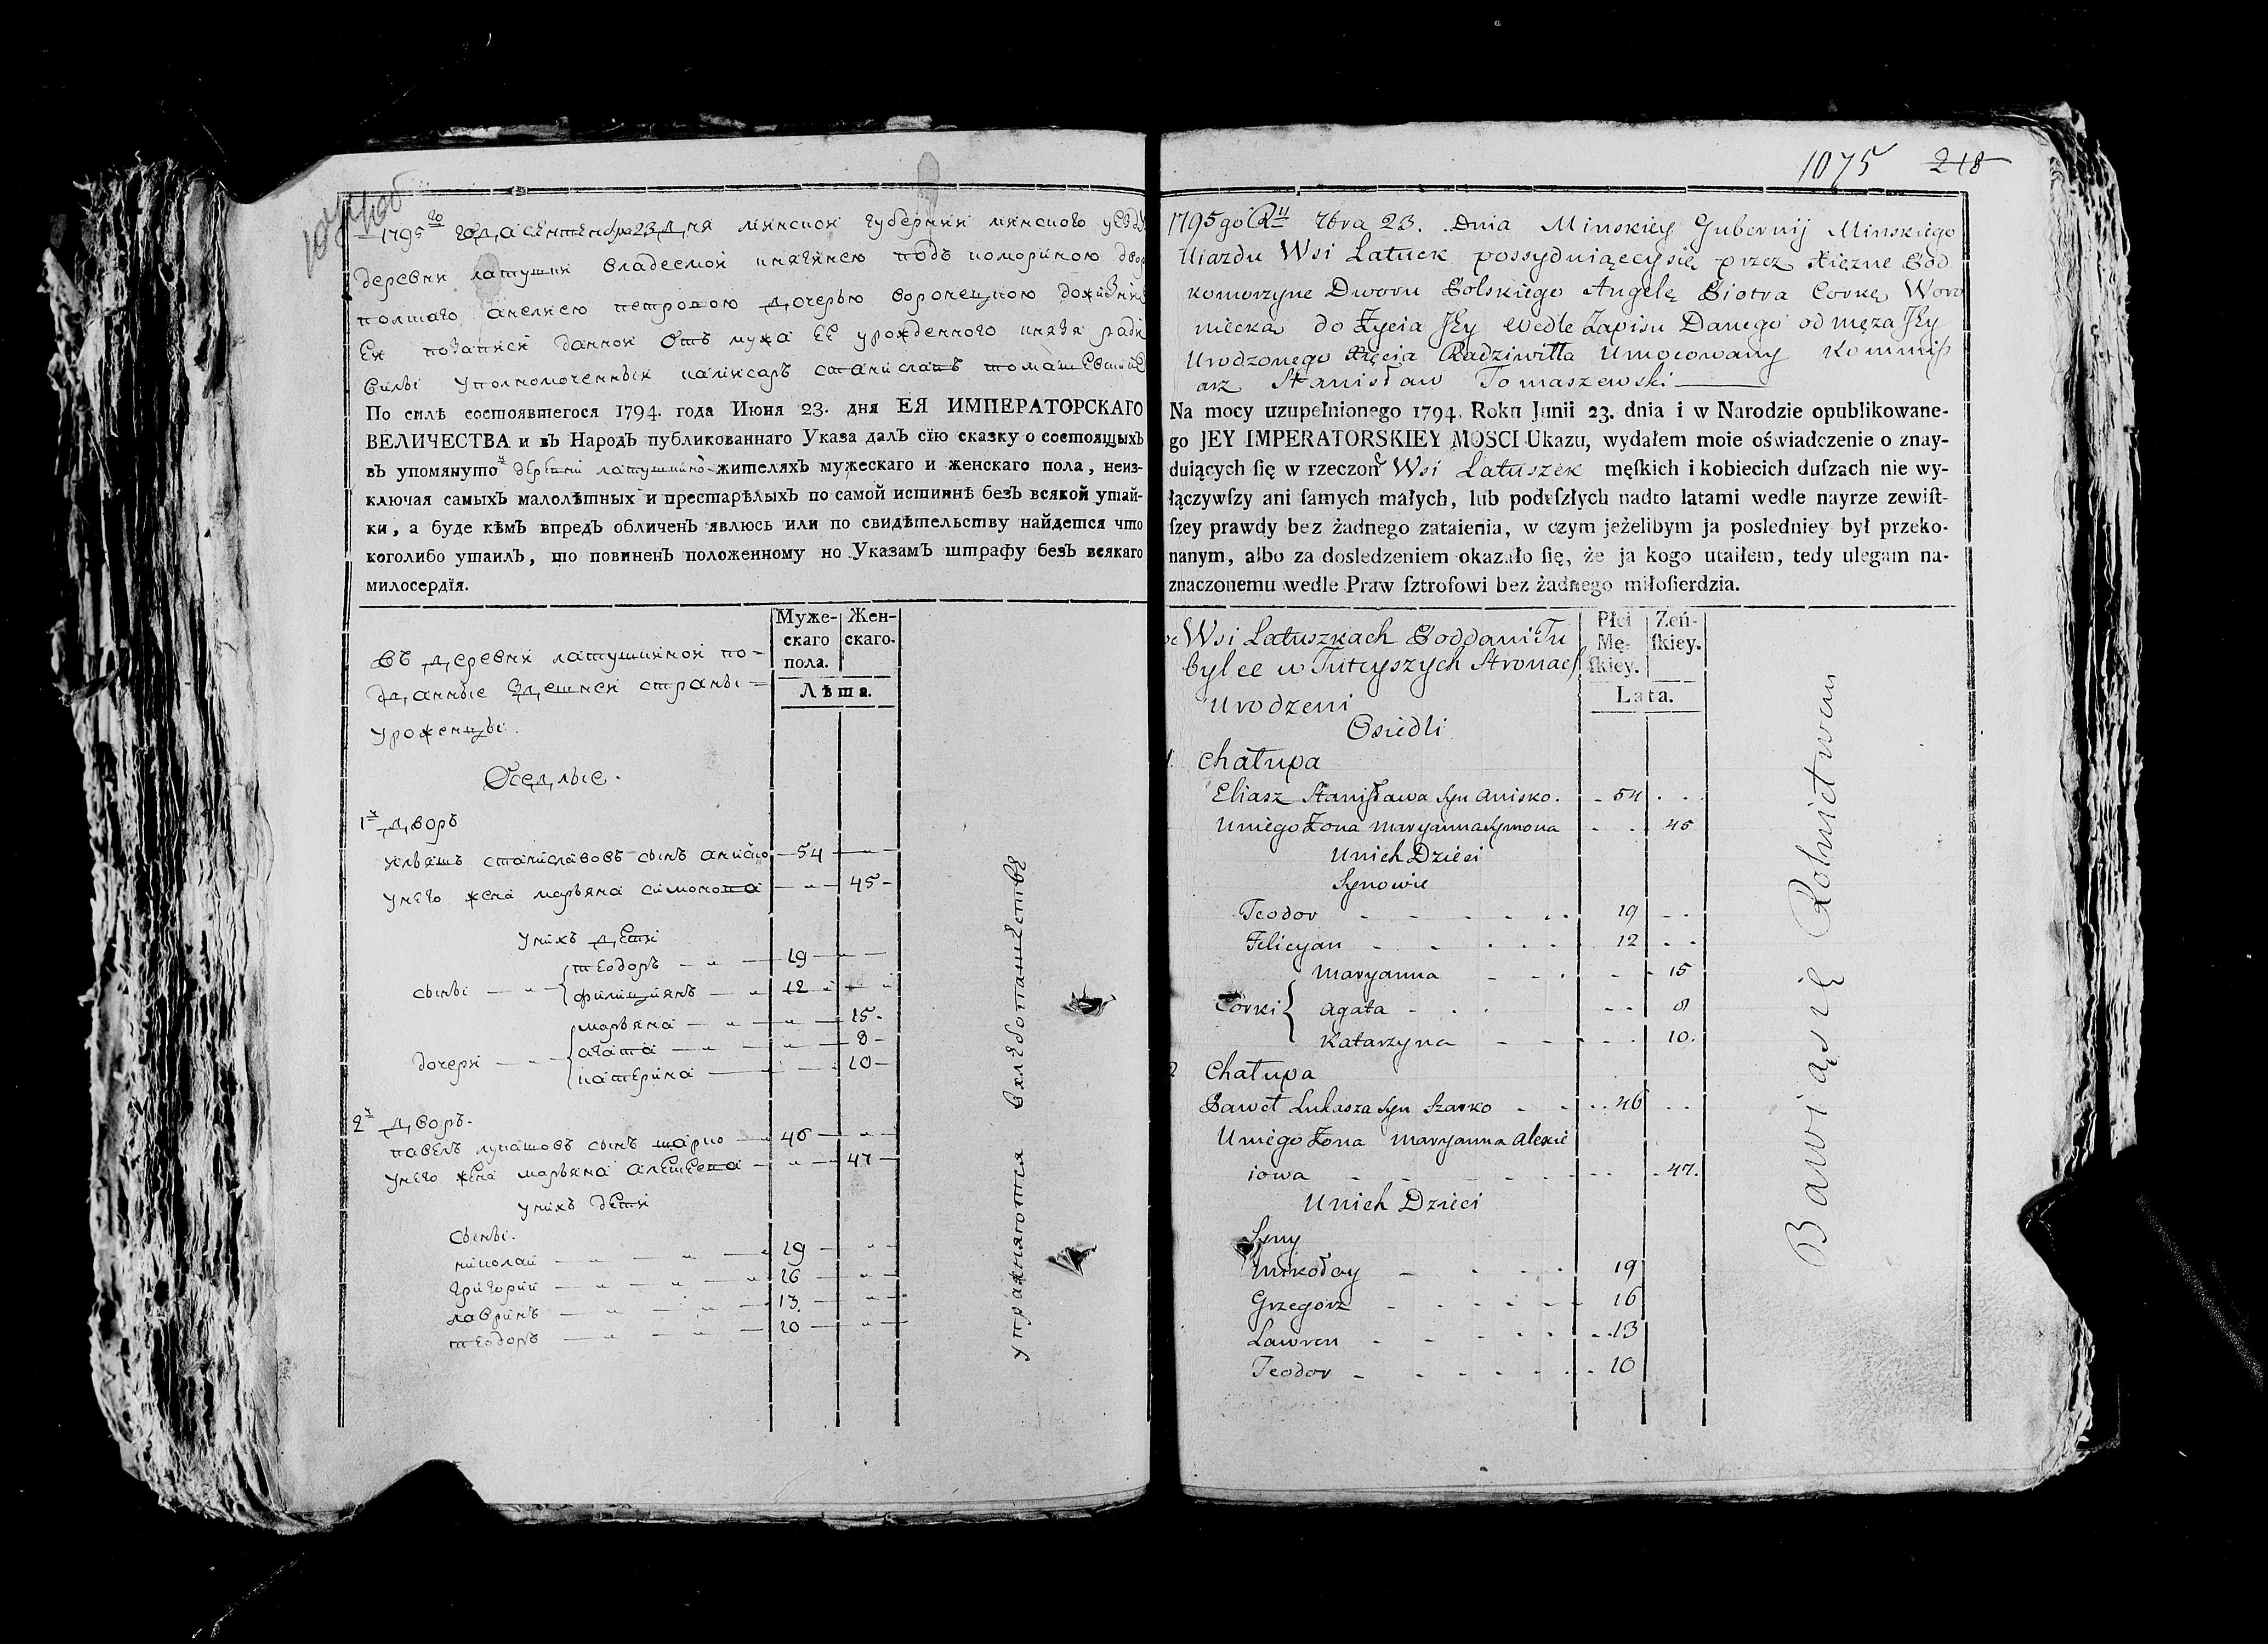 1795го года сентября 23 дня минской губернии минского уезду
деревни латушки владеемой княгинею подъ коморйною двор
полшаго анелиею петровою дочерью воронецкою дожизнен
ея позаписи данной отъ мужа ее урожденного князя радзи
вилы уполномоченный камисаръ станиславъ томашевский
По силѣ состоявшегося 1794. года Июня 23. дня ЕЯ ИМПЕРАТОРСКАГО
ВЕЛИЧЕСТВА и въ Народъ публикованнаго Указа далъ сїю сказку о состоящихъ
въ упомянутой деревни латушкино жителяхъ мужескаго и женскаго пола, неиз-
ключая самыхъ малолѣтныхъ и престарѣлыхъ по самой истиннѣ безъ всякой утай-
ки, а буде кѣмъ впредъ обличенъ явлюсь или по свидѣтельству найдется что
коголибо утаилъ, то повиненъ положенному по Указамъ штрафу безъ всякаго
милосердїя.
Муже-
скаго
пола.
Жен-
скаго.
Лѣта.
Въ деревни латушкиной по-
данные здешней страны
уроженцы.
Оседлые.
1й дворъ
ильяшъ станиславовъ сынъ аниско 54
унего жена марьяна симонова 45
унихъ дети
сыны
теодоръ 19
филициянъ 12
дочери
марьяна 15
агата 8
катерина 10
2й дворъ.
павелъ лукашовъ сынъ шарко 46
унего жена марьяна алексеева 47
унихъ дети
сыны.
николай 19
григорий 16
лавринъ 13
теодоръ 10
упражняются вхлебопашестве
1075 218
1795go Rn 7bra 23. Dnia Minskiey Gubernij Minskiego
Uiazdu Wsi Latuck possydniącey się przez Xięzne Pod
komorzyne Dworu Polskiego Angelę Piotra Corkę Woro
niecka do Zycia Jey wedle Zapisu Danego od męza Jey
Urodzonego Xięcia Radziwiłła Umocowany Kommiss
arz Stanisław Tomaszewski
Na mocy uzupełnionego 1794. Roku Junii 23. dnia i w Narodzie opublikowane-
go JEY IMPERATORSKIEY MOSCI Ukazu, wydałem moie oświadczenie o znay-
duiących ſię w rzeczon Wsi Latuszek męſkich i kobiecich duſzach nie wy-
łączywſzy ani ſamych małych, lub podeſzłych nadto latami wedle nayrze zewiſt-
ſzey prawdy bez żadnego zataienia, w czym jeżelibym ja posledniey był przeko-
nanym, albo za dosledzeniem okazało ſię, że ja kogo utaiłem, tedy ulegam na-
znaczonemu wedle Praw ſztrofowi bez żadnego miłoſierdzia.
Płci
Mę-
ſkiey.
Zeń-
ſkiey.
Lata.
Wsi Latuszkach Poddani Tu
bylce w Tuteyszych Stronach
Urodzeni
Osiedli
1. Chałupa
Eliasz Stanisława Syn Anisko. 54
Uniego Zona Maryanna Symona 45
Unich Dzieci
Synowie
Teodor 19
Felicyan 12
Corki
Maryanna 15
Agata 8
Katarzyna 10.
2 Chałupa
Paweł Lukasza Syn Szarko 46
Uniego Zona Maryanna Alexie
iowa 47.
Unich Dzieci
Syny
Mikołay 19
Grzegorz 16
Lawren 13
Teodor 10
Bawi ąsię Rolnictwem